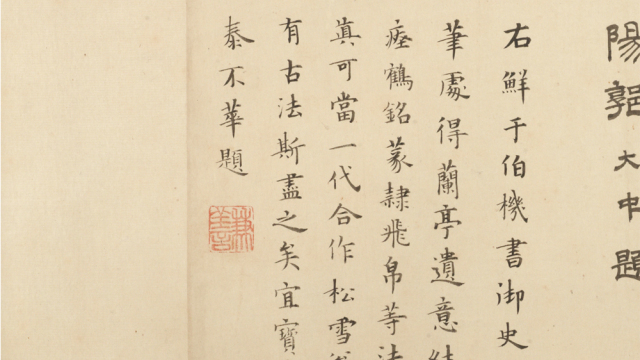 陽郭大中題
右鮮于伯機書御史
筆處得蘭亭遺意結
瘞鶴銘篆隸飛帛等法
真可當一代合作松雪
有古法斯盡之矣宜寶
泰不華題
兼善